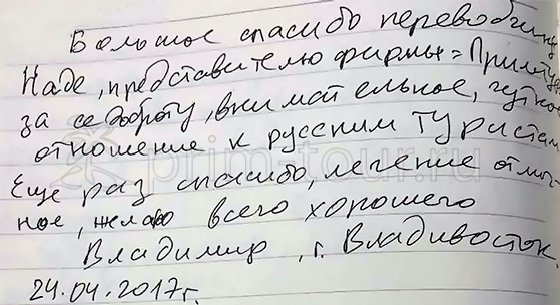 Большое спасибо переводчику
Наде, представителю фирмы = Примтур
за её доброту, внимательное, чуткое
отношение к русским туристам
Еще раз спасибо, лечение отлич-
ное, желаю всего хорошего
Владимир, г. Владивосток.
24.04.2017г.
prim-tour.ru